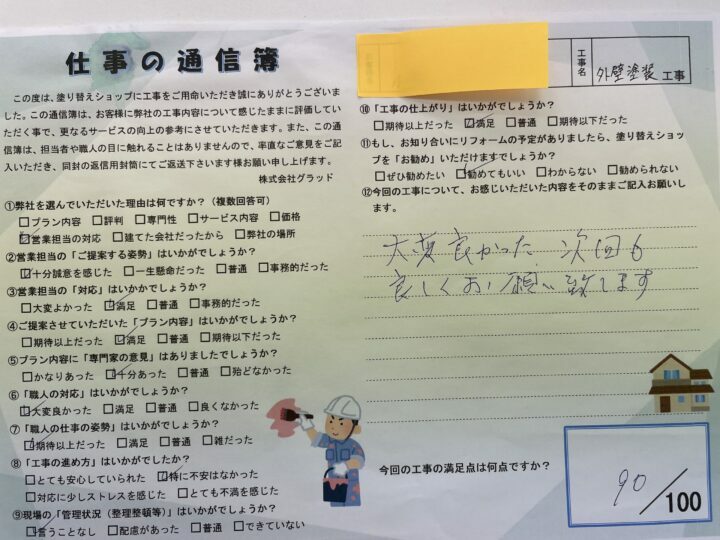 仕事の通信簿
この度は、塗り替えショップに工事をご用命いただき誠にありがとうございま
した。この通信簿は、お客様に弊社の工事内容について感じたままに評価してい
ただく事で、更なるサービスの向上の参考にさせていただきます。また、この
通信簿は、担当者や職人の目に触れることはありませんので、率直なご意見をご記
入いただき、同封の返信用封筒にてご返送下さいます様お願い申し上げます。
株式会社グラッド
①弊社を選んでいただいた理由は何ですか？（複数回答可）
□プラン内容 □評判 □専門性 □サービス内容 □価格
☑営業担当の対応 □建てた会社だったから □弊社の場所
②営業担当の「ご提案する姿勢」はいかがでしょうか？
☑十分誠意を感じた □一生懸命だった □普通 □事務的だった
③営業担当の「対応」はいかがでしょうか？
□大変よかった ☑満足 □普通 □事務的だった
④ご提案させていただいた「プラン内容」はいかがでしょうか？
□期待以上だった ☑満足 □普通 □期待以下だった
⑤プラン内容に「専門家の意見」はありましたでしょうか？
□かなりあった ☑十分あった □普通 □殆どなかった
⑥「職人の対応」はいかがでしょうか？
☑大変良かった □満足 □普通 □良くなかった
⑦「職人の仕事の姿勢」はいかがでしょうか？
☑期待以上だった □満足 □普通 □雑だった
⑧「工事の進め方」はいかがでしたか？
□とても安心していられた ☑特に不安はなかった
□対応に少しストレスを感じた □とても不満を感じた
⑨現場の「管理状況（整理整頓等）」はいかがでしょうか？
☑言うことなし □配慮があった □普通 □できていない
工事名 外壁塗装 工事
⑩「工事の仕上がり」はいかがでしょうか？
□期待以上だった ☑満足 □普通 □期待以下だった
⑪もし、お知り合いにリフォームの予定がありましたら、塗り替えショッ
プを「お勧め」いただけますでしょうか？
□ぜひ勧めたい ☑勧めてもいい □わからない □勧められない
⑫今回の工事について、お感じいただいた内容をそのままご記入お願いしま
す。
大変良かった 次回も
良しくお願い致します
今回の工事の満足点は何点ですか？
90/100